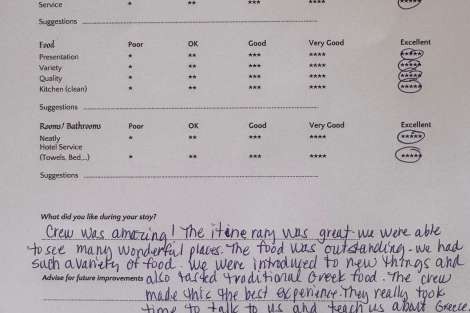 Service * ** *** **** *****
Suggestions
Food Poor OK Good Very Good Excellent
Presentation * ** *** **** *****
Variety * ** *** **** *****
Quality * ** *** **** *****
Kitchen (clean) * ** *** **** *****
Suggestions
Rooms/ Bathrooms Poor OK Good Very Good Excellent
Neatly * ** *** **** *****
Hotel Service
(Towels, Bed,..) * ** *** **** *****
Suggestions
What did you like during your stay?
Crew was amazing! The itinerary was great we were able
to see many wonderful places. The food was outstanding. we had
such a variety of food. We were introduced to new things and
Advise for future improvements also tasted traditional Greek food. The crew
made this the best experience. They really took
time to talk to us and teach us about Greece